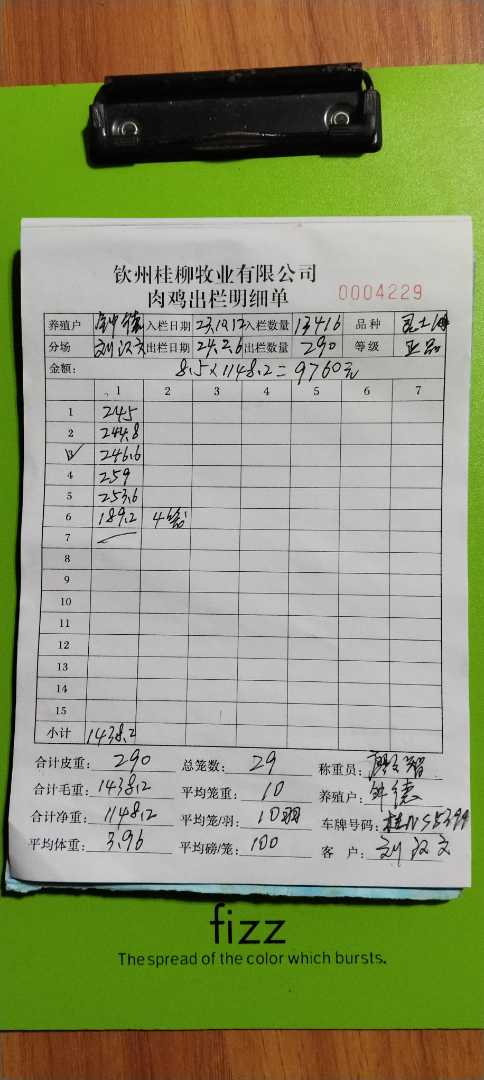 钦州桂柳牧业有限公司
肉鸡出栏明细单 0004229
养殖户 钟德 入栏日期 23.10.12 入栏数量 13416 品种
分场 刘汉文 出栏日期 24.2.6 出栏数量 290 等级 正品
金额: 8.5×1148.2=9760元
1 2 3 4 5 6 7
1 245
2 244.8
3 246.6
4 259
5 253.6
6 189.2 4笼
7
8
9
10
11
12
13
14
15
小计 1438.2
合计皮重: 290 总笼数: 29 称重员:
合计毛重: 1438.2 平均笼重: 10 养殖户: 钟德
合计净重: 1148.2 平均笼/羽: 10羽 车牌号码: 桂NS5399
平均体重: 3.96 平均磅/笼: 100 客 户: 刘汉文
fizz
The spread of the color which bursts.